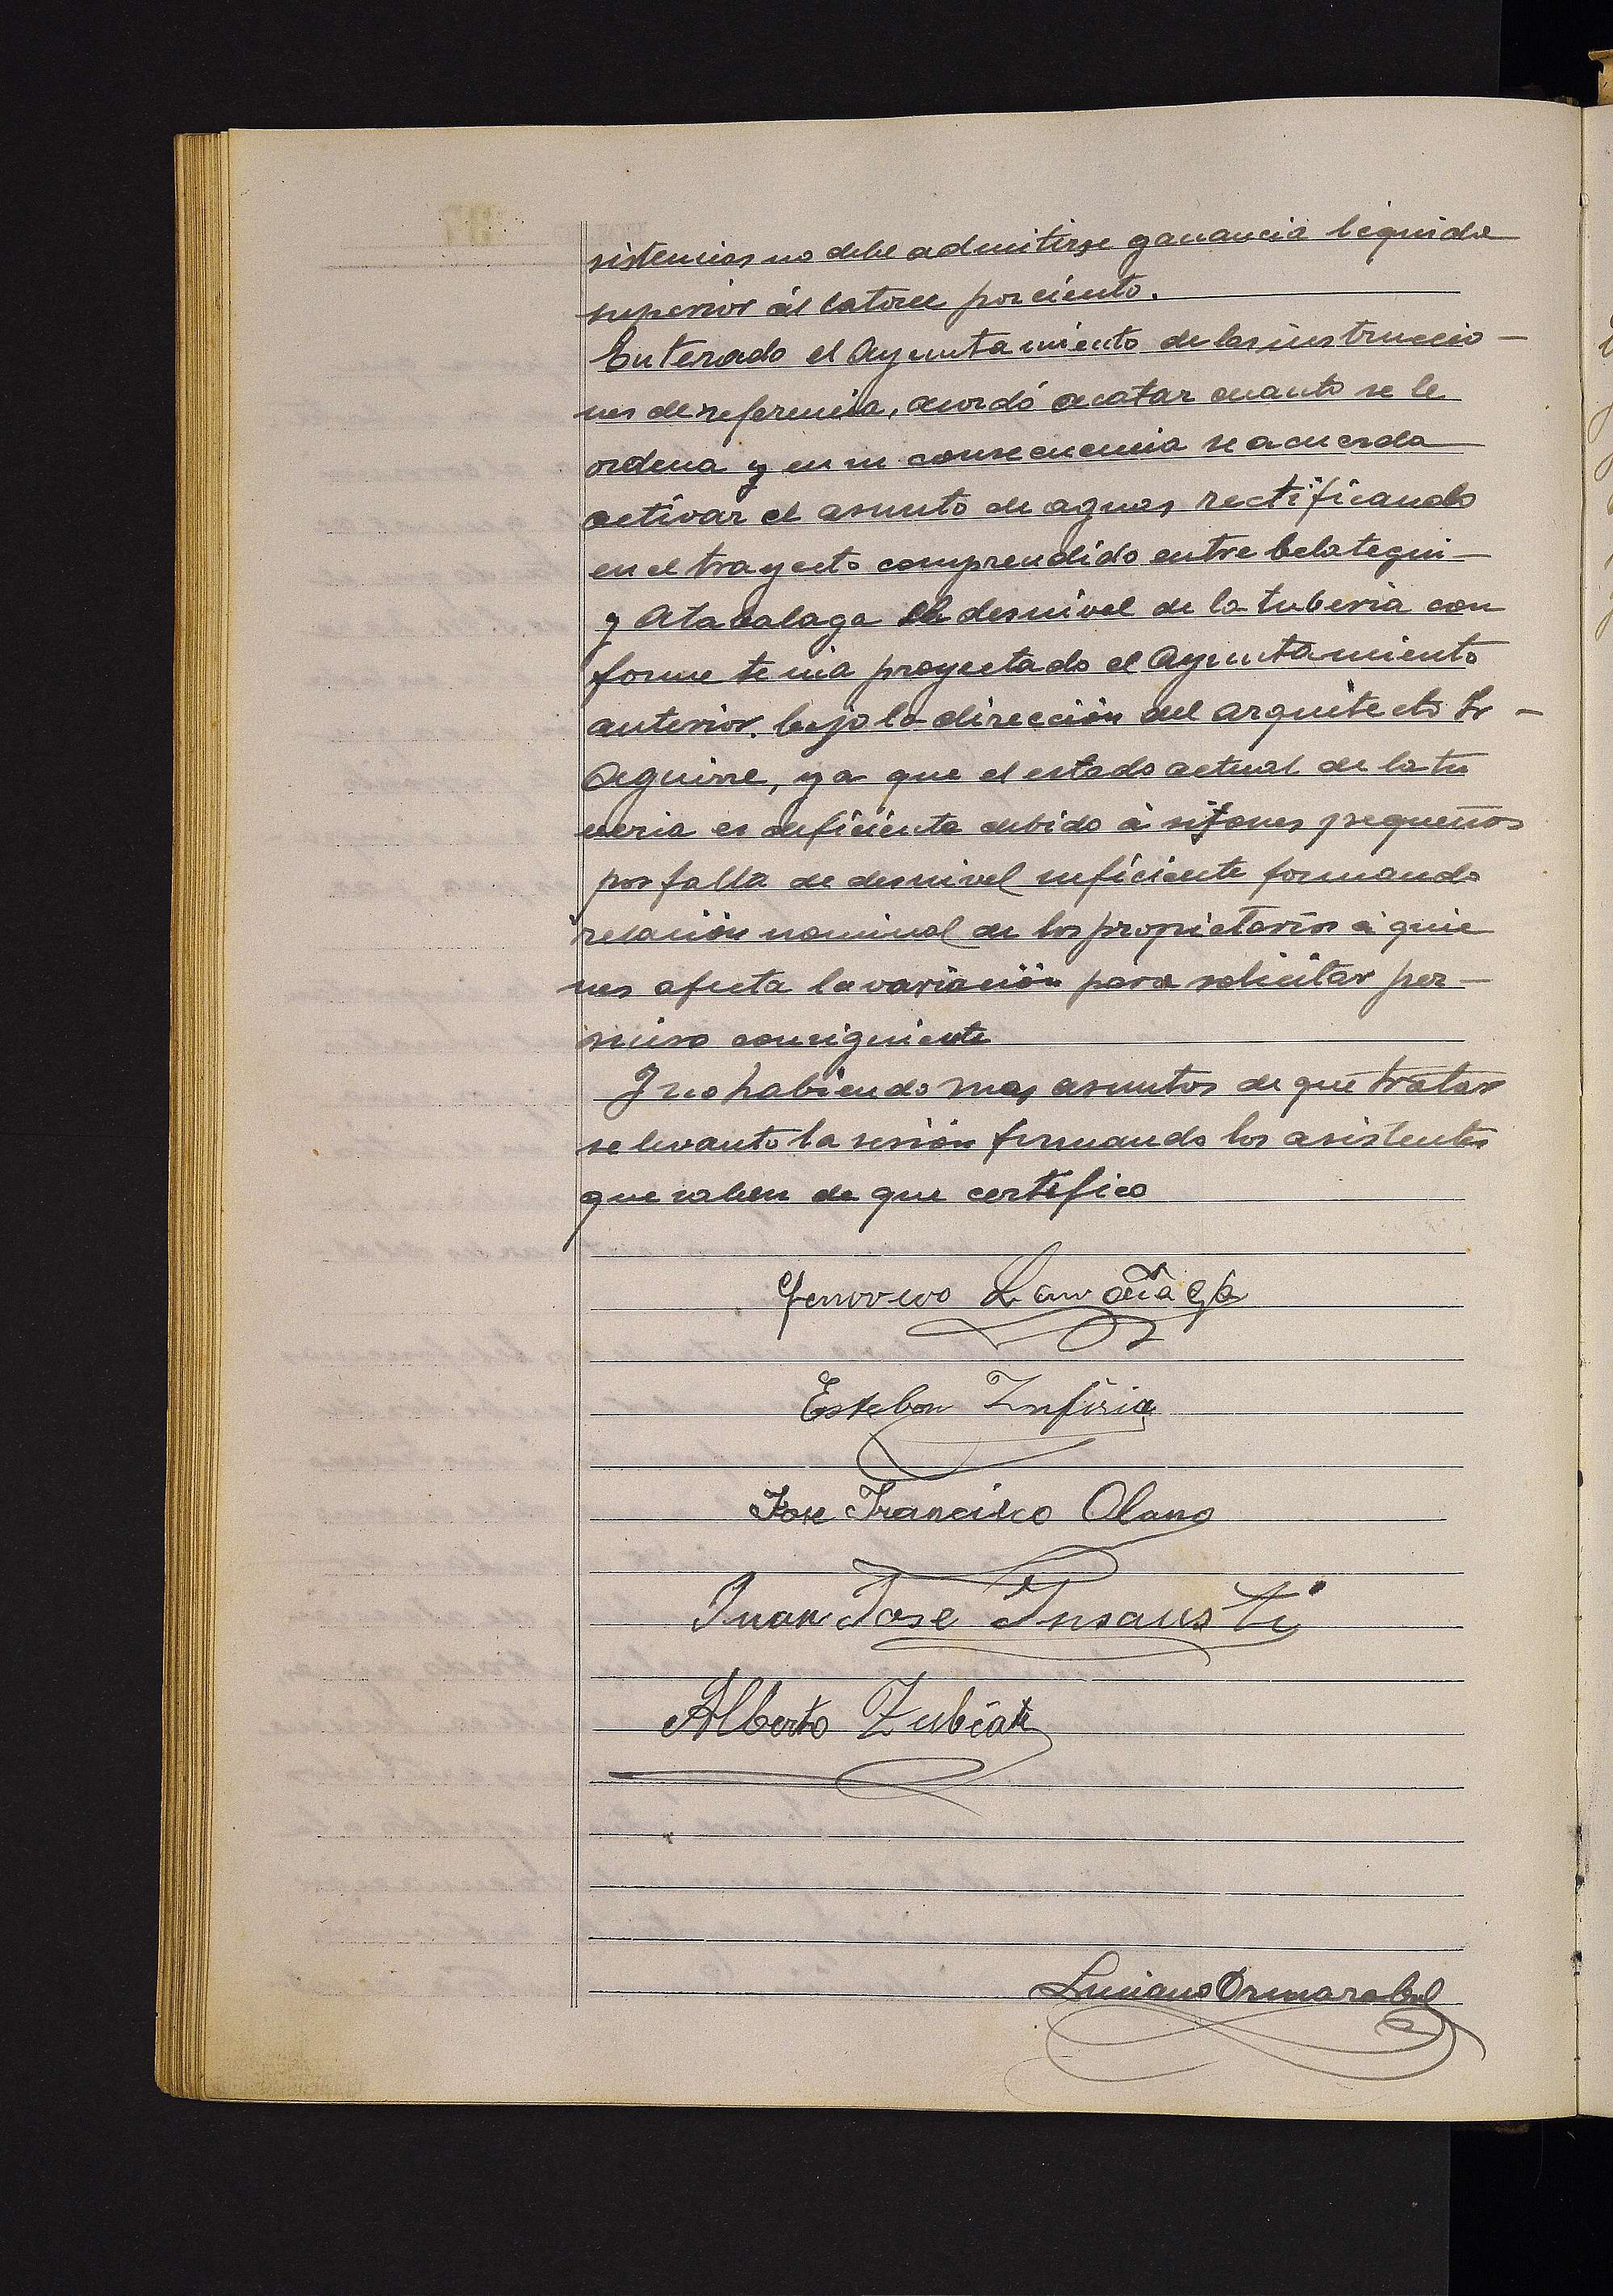 sistencias no debe admitirse ganancia liquida
superior ál catorce por ciento.
Enterado el Ayuntamiento de las instruccio-
nes de referencia, acordó acatar cuanto se le
ordena y en su consecuencia se acuerda
activar el asunto de aguas rectificando
en el trayecto comprendido entre Celategui-
y Atabalaga el desnivel de la tuberia con
forme tenia proyectado el Ayuntamiento
anterior. bajo la dirección del arquitecto Sr-
Aguirre, ya que el estado actual de la tu
beria es deficiente debido á sifones pequeños
por falta de desnivel suficiente formando
relación nominal de los propietarios á quie
nes afecta la variación para solicitar per-
miso consiguiente
Y no habiendo mas asuntos de que tratar
se levanto la sesión firmando los asistentes
que saben de que certifico
Esteban Zufiria
Jose Francisco Olano
Juan Jose Insausti
Alberto Zubiate
Luciano Ormarabal